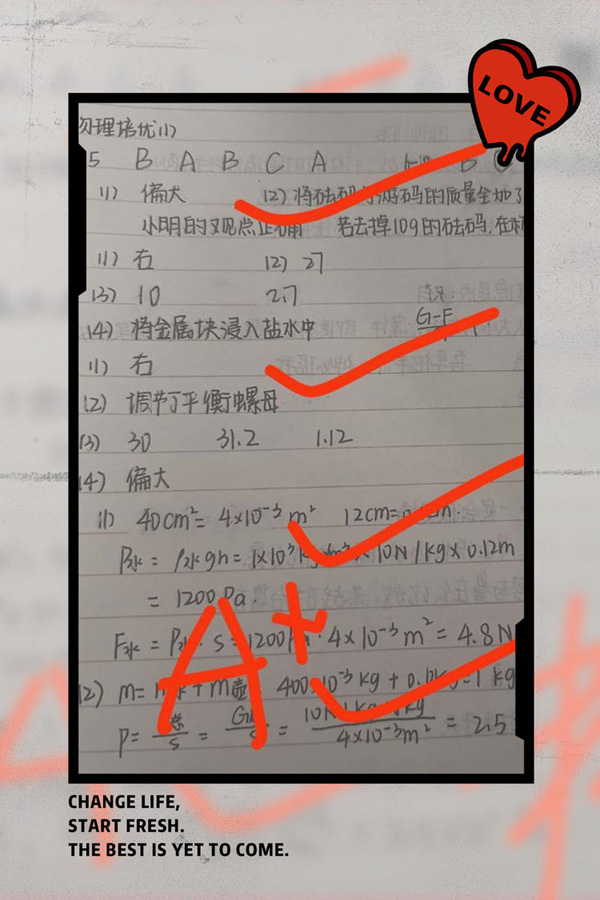 LOVE
物理培优(1)
5 B A B C A B
(1) 偏大 (2) 将砝码与游码的质量全加了
小明的观点正确 若去掉10g的砝码,在
(1) 右 (2) 27
(3) 10 2.7
(4) 将金属块浸入盐水中 G-F
(1) 右
(2) 调节平衡螺母
(3) 30 31.2 1.12
(4) 偏大
(1) 40cm²= 4×10⁻³ m² 12cm=
P水 = ρ水gh = 1×10³kg/m³×10N/kg×0.12m
= 1200Pa
F水 = P水·S = 1200Pa·4×10⁻³m² = 4.8N
A+
(2) m= m水+m壶 400 10⁻³kg + 0. kg=1kg
P= 总/S = G总/S = 10N/kg kg/4×10⁻³m² = 2.5
CHANGE LIFE,
START FRESH.
THE BEST IS YET TO COME.